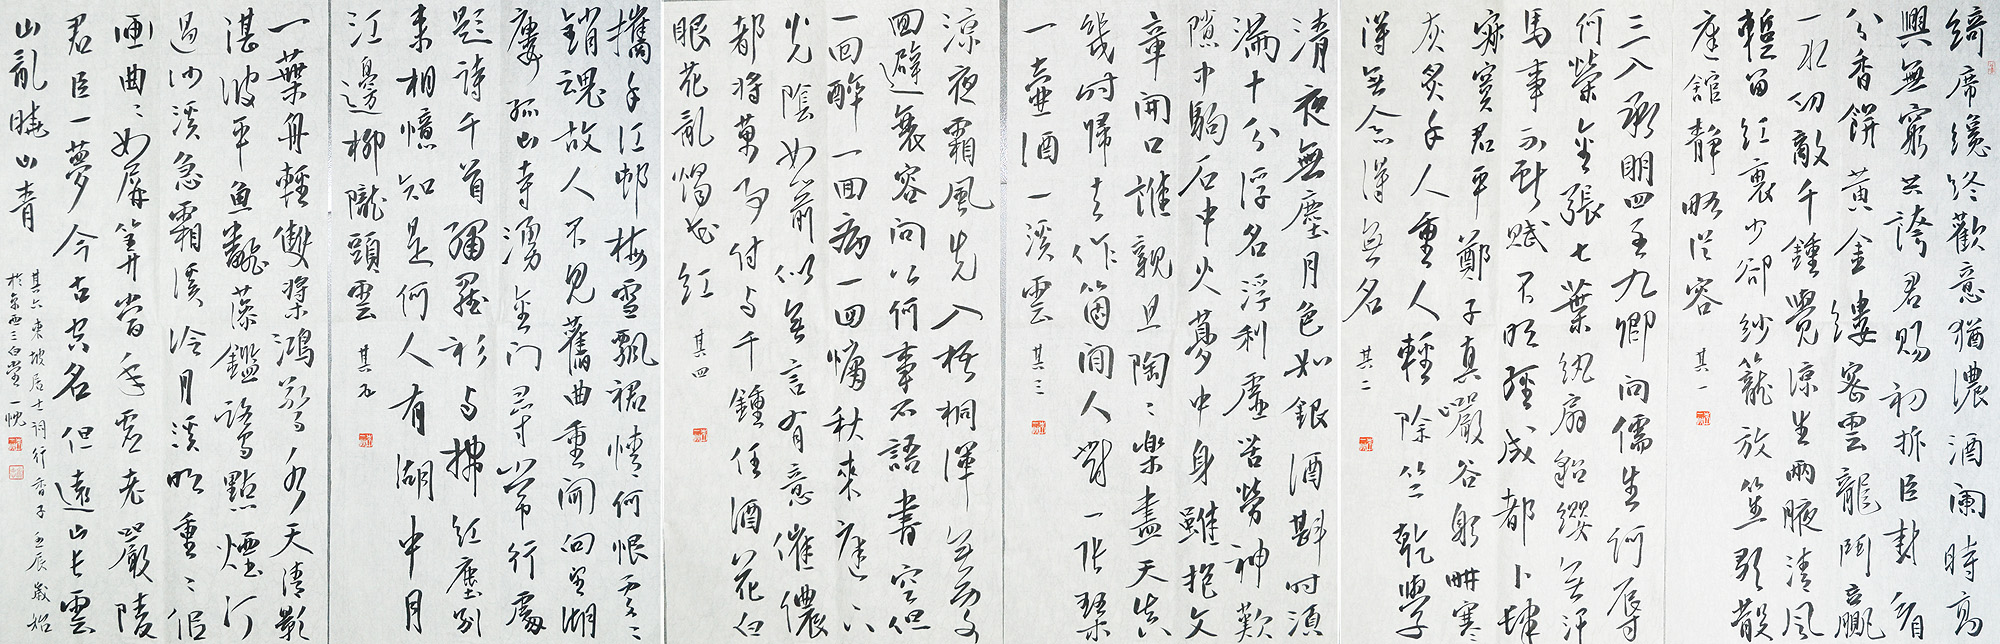 綺席纔終歡意猶濃酒闌時高
興無窮共誇君賜初拆臣封看
分香餅黃金縷密雲龍鬥贏
一水功敵千鍾覺涼生兩腋清風
暫留紅褎少卻紗籠放笙歌散
庭館靜略從容 其一
三入承明四至九卿問儒生何辱
何榮金張七葉紈扇貂纓無汗
馬事不獻賦不明經成都卜肆
寂寞君平鄭子真巖谷躬耕寒
灰炙手人重人輕除竺乾學
得無念得無名 其二
清夜無塵月色如銀酒斟時須
滿十分浮名浮利虛苦勞神歎
隙中駒石中火夢中身雖抱文
章開口誰親且陶〻樂盡天真
幾時歸去作箇閒人對一張琴
一壺酒一溪雲 其三
涼夜霜風先入梧桐渾無處
回避衰容問公何事不語書空但
一回醉一回病一回慵秋來庭下
光陰如箭似無言有意催儂
都將萬事付與千鍾任酒花白
眼花亂燭花紅 其四
攜手江邨梅雪飄裙情何恨處〻
銷魂故人不見舊曲重聞向望湖
樓孤山寺湧金門尋常行處
題詩千首繡羅衫與拂紅塵別
來相憶知是何人有湖中月
江邊柳隴頭雲 其五
一葉舟輕雙槳鴻驚水天清影
湛波平魚翻藻鑑鷺點煙汀
過沙溪急霜溪冷月溪明重〻似
畫曲〻如屏算當年虛老嚴陵
君臣一夢今古空名但遠山長雲
山亂曉山青
其六東坡居士詞行香子壬辰歲始
於京西三白堂一忱